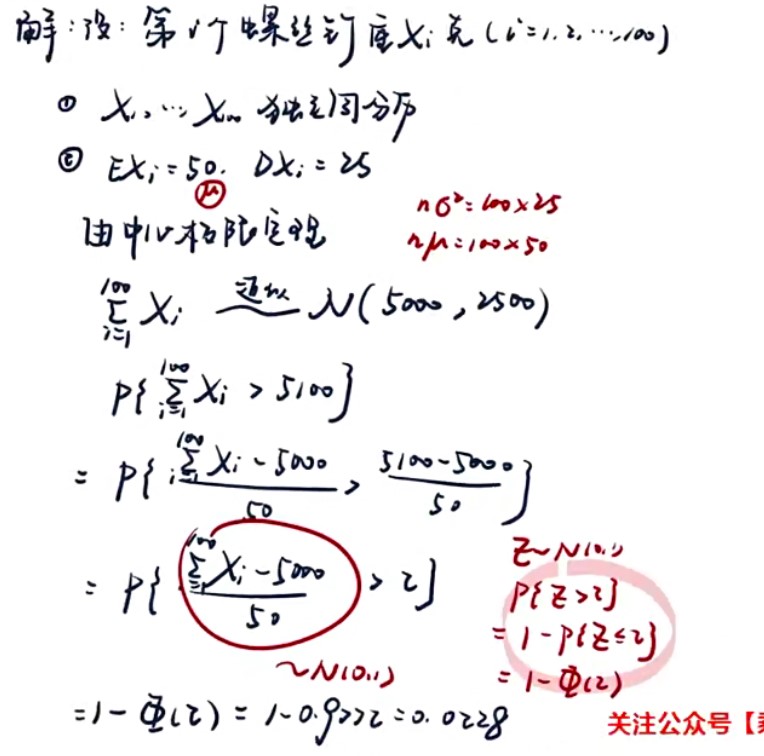 解:设:第i个螺丝钉重Xi克(i=1,2,…,100)
① X1,…X100 独立同分布
② EXi=50. DXi=25
μ
nσ²=100×25
由中心极限定理
nμ=100×50
∑(i=1到100) Xi 近似~ N(5000,2500)
P{∑(i=1到100) Xi > 5100}
= P{(∑(i=1到100) Xi-5000)/50 > (5100-5000)/50}
= P{(∑(i=1到100) Xi-5000)/50 > 2}
~N(0,1)
Z~N(0,1)
P{Z>2}
=1-P{Z≤2}
=1-Φ(2)
=1-Φ(2)=1-0.9772=0.0228
关注公众号【